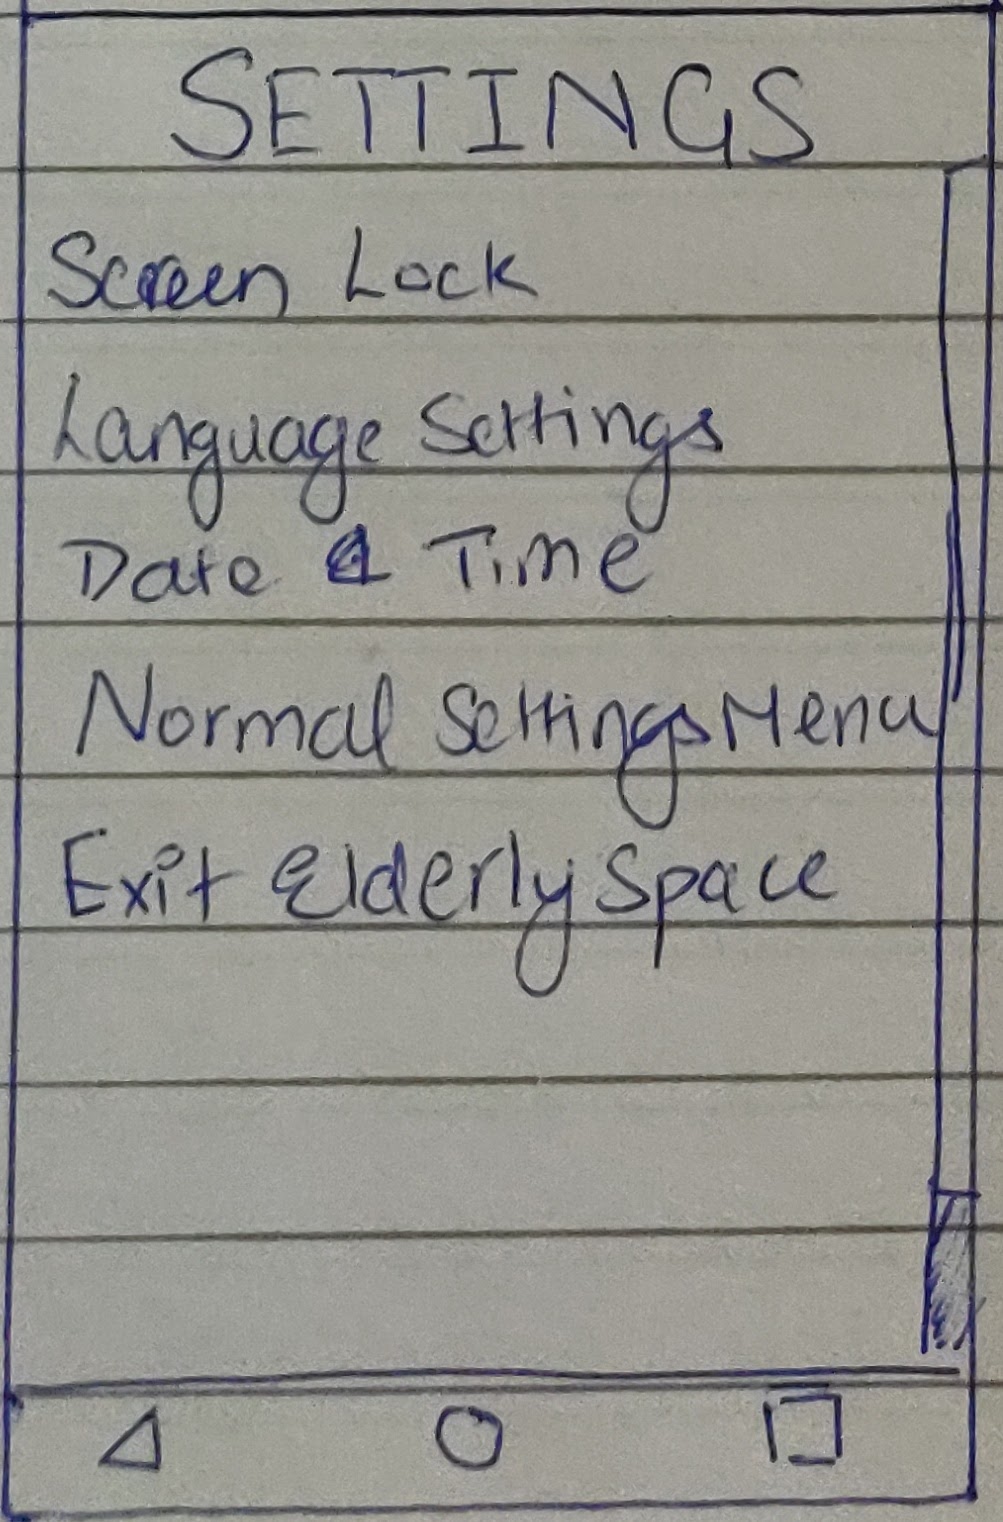 SETTINGS
Screen Lock
Language Settings
Date & Time
Normal Settings Menu
Exit Elderly Space